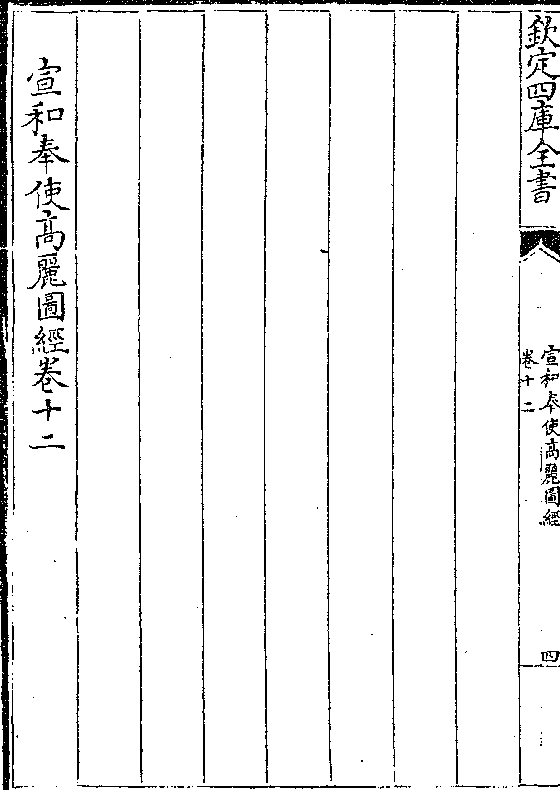 欽定四庫全書
宣和奉使高麗圖經
卷十二
四
宣和奉使高麗圖經卷十二